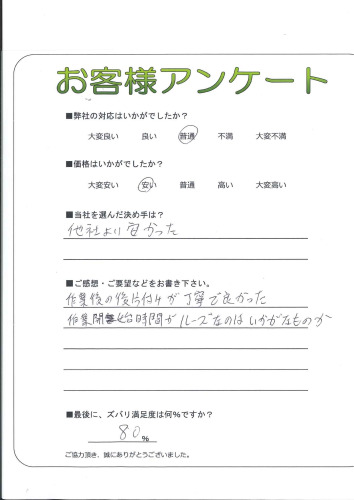 お客様アンケート
■弊社の対応はいかがでしたか?
大変良い 良い 普通 不満 大変不満
■価格はいかがでしたか?
大変安い 安い 普通 高い 大変高い
■当社を選んだ決め手は?
他社より安かった
■ご感想・ご要望などをお書き下さい。
作業後の後片付けが丁寧で良かった
作業開始時間がルーズなのはいかがなものか
■最後に、ズバリ満足度は何%ですか?
80%
ご協力頂き、誠にありがとうございました。